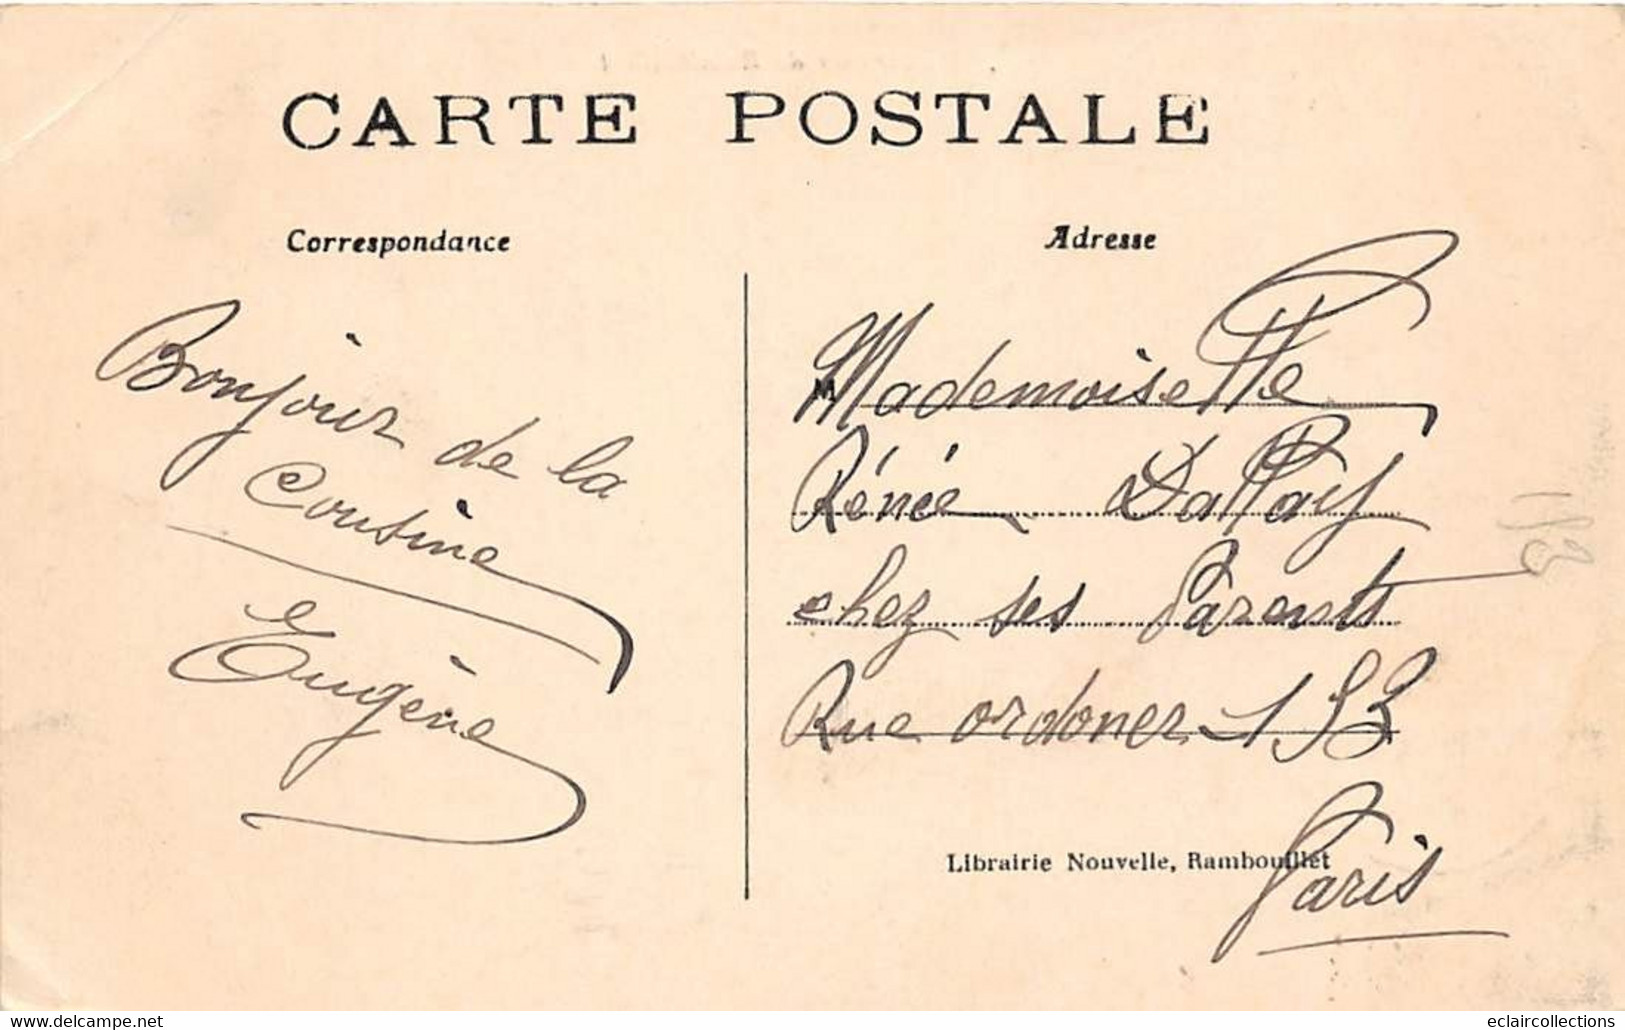 CARTE POSTALE
Correspondance
Bonjour de la
Cousine
Eugène
Adresse
M Mademoiselle
Rénée
chez ses Parents
Rue ordoner 153
Librairie Nouvelle, Rambouillet
Paris
eclaircollections
www.delcampe.net